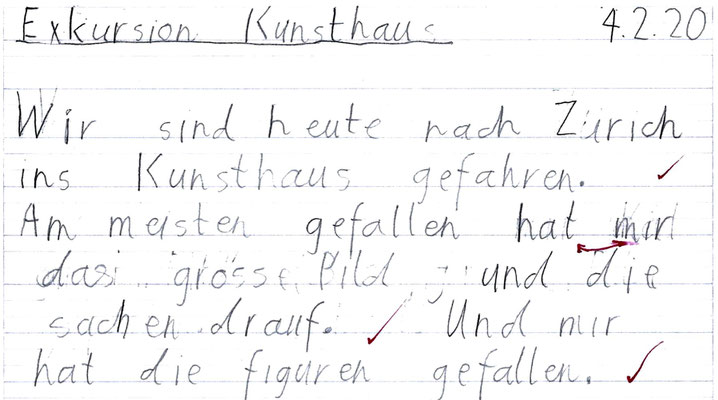 Exkursion Kunsthaus 4.2.20
Wir sind heute nach Zürich
ins Kunsthaus gefahren.
Am meisten gefallen hat mir
das grosse Bild und die
sachen drauf. Und mir
hat die figuren gefallen.